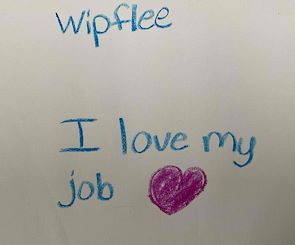 Wipflee
I love my
job